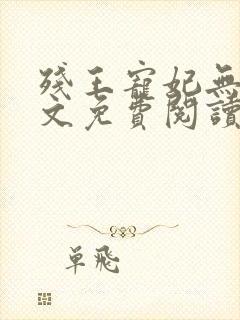 殘王寵妃無
文免費閱讀
單飛